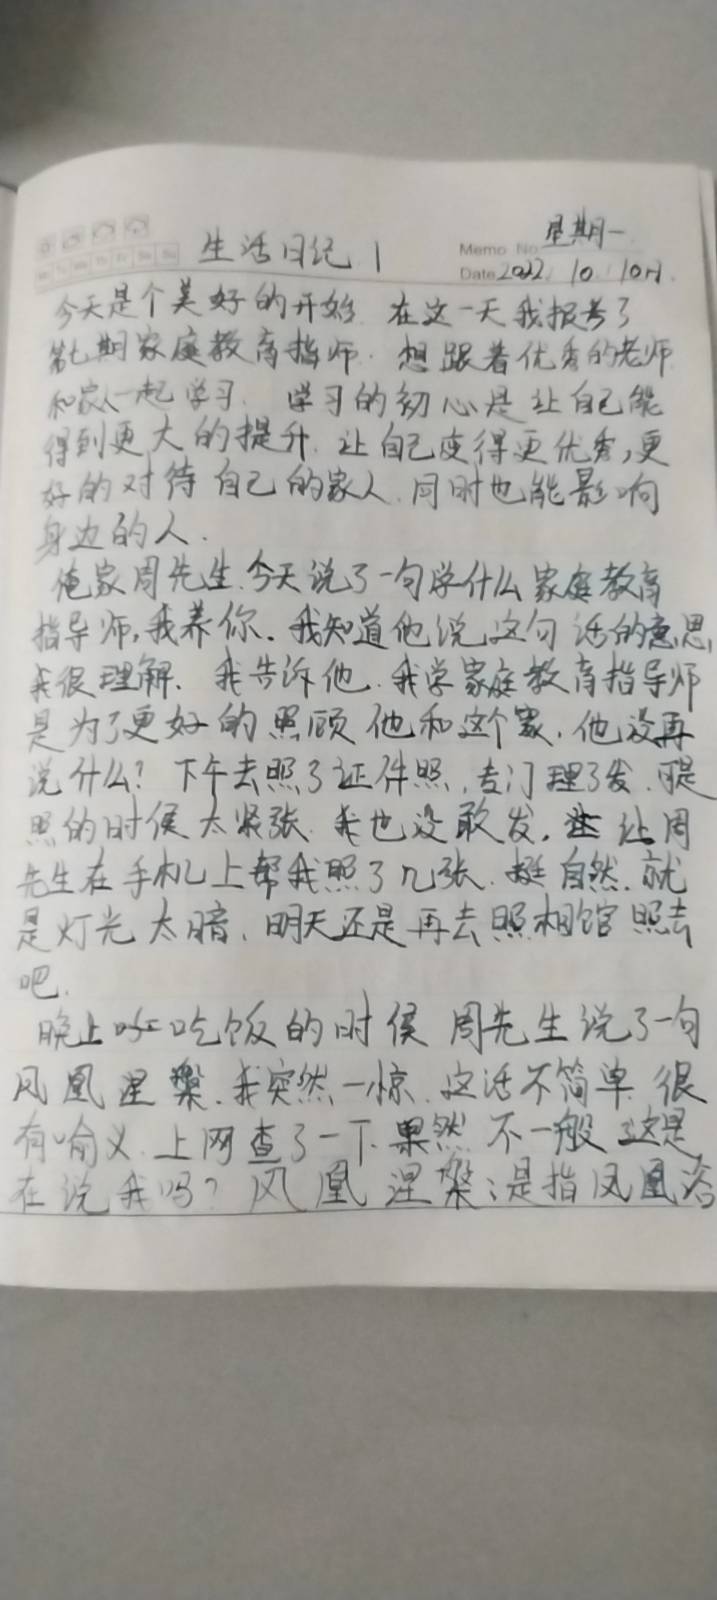 生活日记 1
Memo No. 星期一
Date 2022. 10. 10日.
今天是个美好的开始. 在这一天我报考了
第七期家庭教育指师. 想跟着优秀的老师
和家人一起学习. 学习的初心是让自己能
得到更大的提升. 让自己变得更优秀,更
好的对待自己的家人.同时也能影响
身边的人.
俺家周先生.今天说了一句学什么家庭教育
指导师,我养你. 我知道他说这句话的意思,
我很理解. 我告诉他.我学家庭教育指导师
是为了更好的照顾他和这个家. 他没再
说什么? 下午去照了证件照,专门理了发.可是
照的时侯太紧张.我也没敢发. 让周
先生在手机上帮我照了几张. 挺自然.就
是灯光太暗. 明天还是再去照相馆照去
吧.
晚上吃饭的时侯 周先生说了一句
凤凰涅槃.我突然一惊.这话不简单.很
有喻义.上网查了一下.果然不一般.这是
在说我吗? 凤凰涅槃;是指凤凰浴